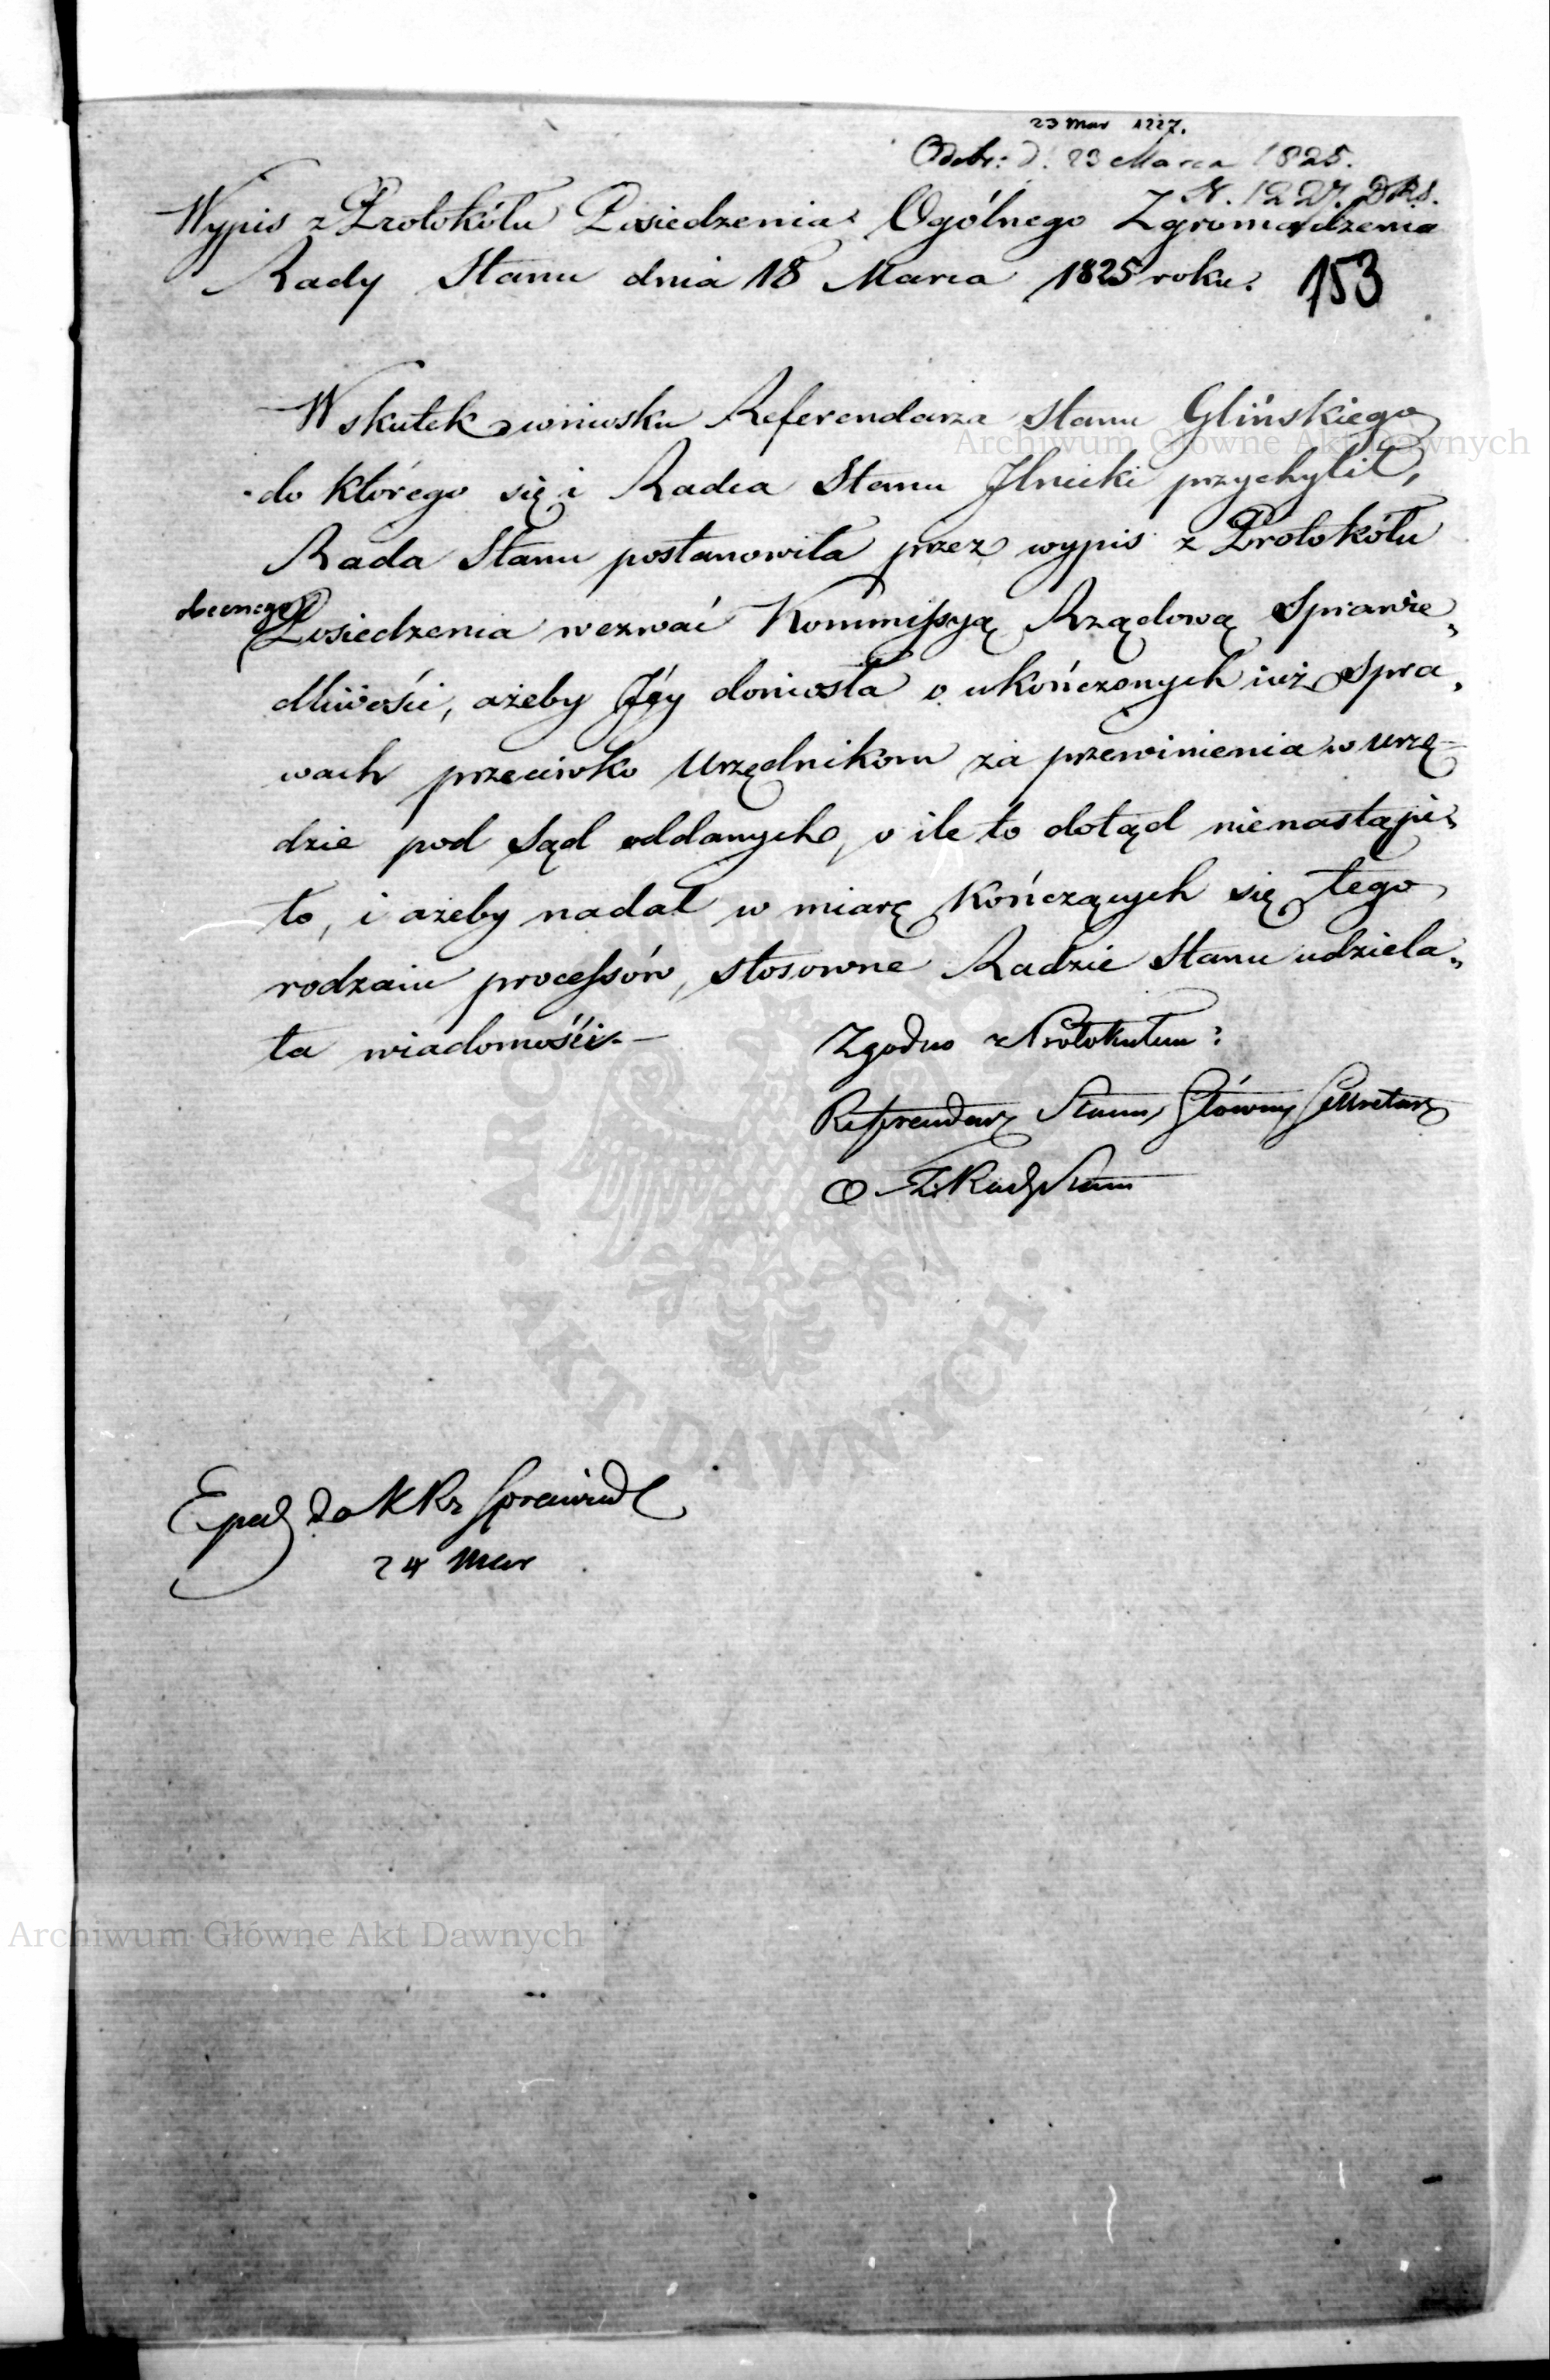 23 Mar 1227.
Odebr: d. 23 Marca 1825.
N. 1227. D.R.S.
Wypis z Protokółu Posiedzenia Ogólnego Zgromadzenia
Rady Stanu dnia 18 Marca 1825 roku.
153
Wskutek wniosku Referendarza Stanu Glińskiego
Archiwum Główne Akt Dawnych
do którego się i Radca Stanu Jlnicki przychylił,
Rada Stanu postanowiła przez wypis z Protokółu
obecnego
Posiedzenia wezwać Kommissyą Rządową Sprawie„
dliwości, ażeby Jéy doniosła o ukończonych iuż spra„
wach przeciwko Urzędnikom za przewinienia w urzę-
dzie pod Sąd oddanych, o ile to dotąd nienastąpi„
ło, i ażeby nadal w miarę kończących się tego
rodzaiu processów, stosowne Radzie Stanu udziela„
ła wiadomości.—
Zgodno z Protokułem:
Referendarz Stanu, Główny Sekretarz
Rady Stanu
ARCHIWUM GŁÓWNE · AKT DAWNYCH ·
Exped do K Rz Sprawiedl
24 Mar
Archiwum Główne Akt Dawnych